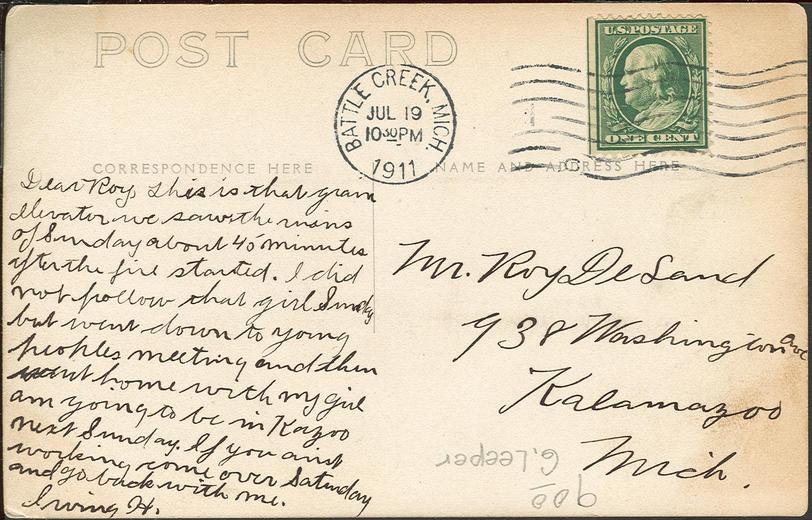 POST CARD
U.S. POSTAGE
ONE CENT
BATTLE CREEK, MICH.
JUL 19
10 30 PM
1911
CORRESPONDENCE HERE
NAME AND ADDRESS HERE
Dear Roy, This is that grain
elevator we saw the ruins
of Sunday about 45 minutes
after the fire started. I did
not follow that girl Sunday
but went down to young
peoples meeting and then
went home with my girl
am going to be in Kazoo
next Sunday. If you aint
working come over Saturday
and go back with me.
Irving H.
Mr. Roy DeLand
938 Washington Ave
Kalamazoo
Mich.
G. Leeper
900